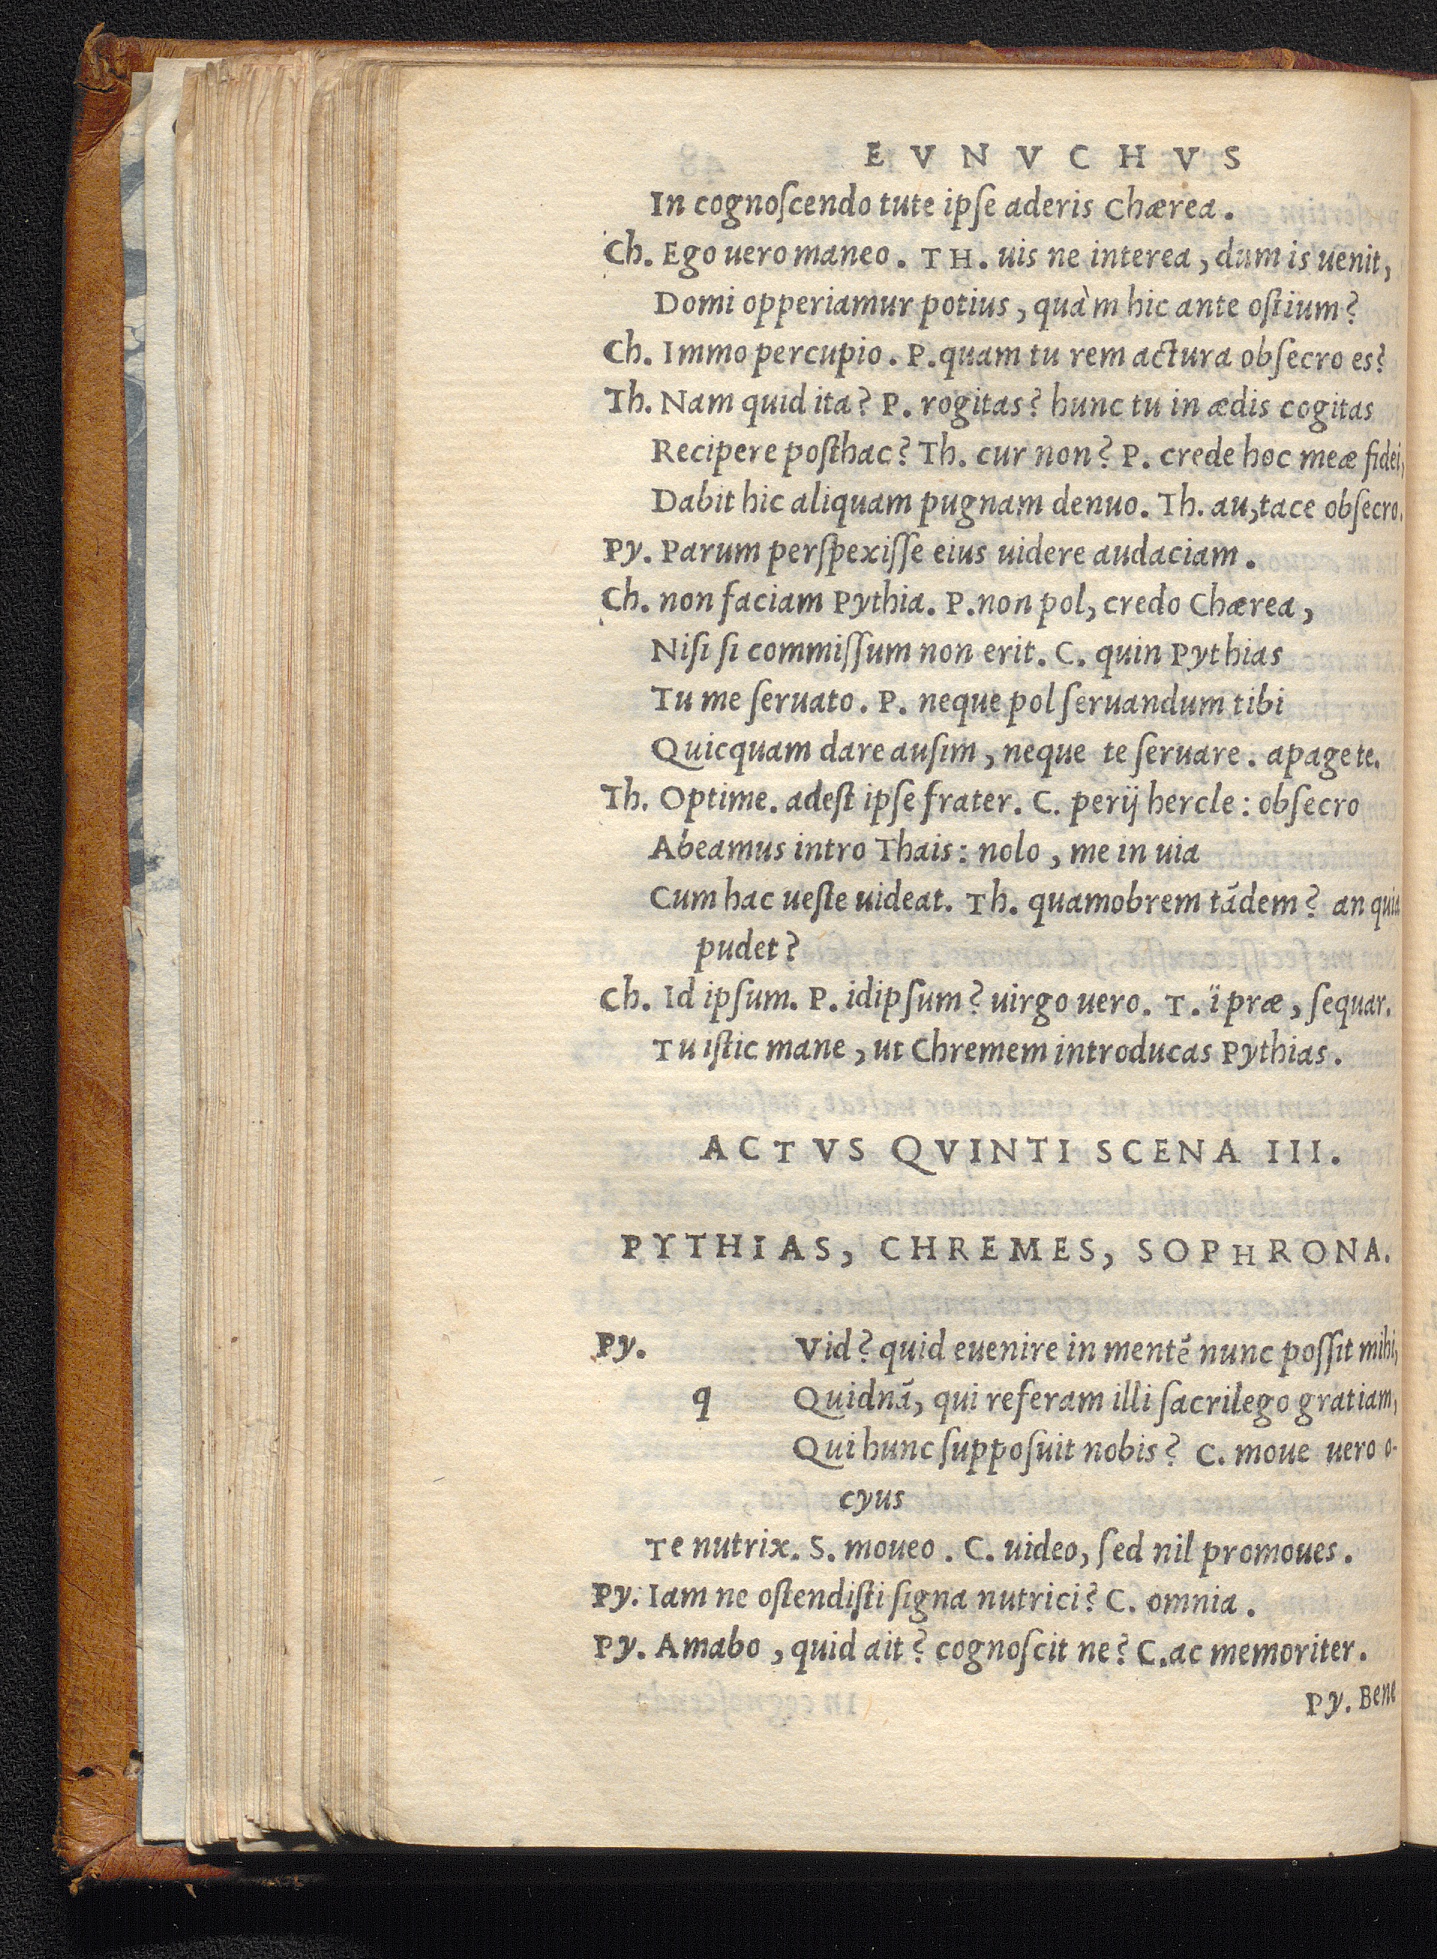 EVNVCHVS
In cognoſcendo tute ipſe aderis Chærea.
Ch. Ego uero maneo. TH. uis ne interea, dum is uenit,
Domi opperiamur potius, quàm hic ante oſtium?
Ch. Immo percupio. P. quam tu rem actura obſecro es?
Th. Nam quid ita? P. rogitas? hunc tu in ædis cogitas
Recipere poſthac? Th. cur non? P. crede hoc meæ fidei,
Dabit hic aliquam pugnam denuo. Th. au, tace obſecro.
Py. Parum perſpexiſſe eius uidere audaciam.
Ch. non faciam Pythia. P. non pol, credo Chærea,
Niſi ſi commiſſum non erit. C. quin Pythias
Tu me ſeruato. P. neque pol ſeruandum tibi
Quicquam dare auſim, neque te ſeruare. apage te.
Th. Optime. adeſt ipſe frater. C. perij hercle: obſecro
Abeamus intro Thais: nolo, me in uia
Cum hac ueſte uideat. Th. quamobrem tãdem? an quia
pudet?
Ch. Id ipſum. P. idipſum? uirgo uero. T. ï præ, ſequar.
Tu iſtic mane, ut Chremem introducas Pythias.
ACTVS QVINTI SCENA III.
PYTHIAS, CHREMES, SOPHRONA.
Py. Vid? quid euenire in mentẽ nunc poſſit mihi,
q Quidnã, qui referam illi ſacrilego gratiam,
Qui hunc ſuppoſuit nobis? C. moue uero o-
cyus
Te nutrix. S. moueo. C. uideo, ſed nil promoues.
Py. Iam ne oſtendiſti ſigna nutrici? C. omnia.
Py. Amabo, quid ait? cognoſcit ne? C. ac memoriter.
Py. Bene